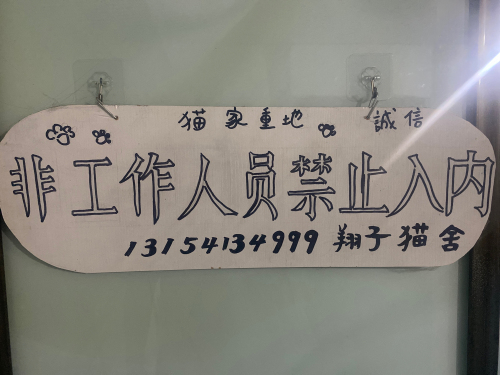 猫家重地 誠信
非工作人员禁止入内
13154134999 翔子猫舍